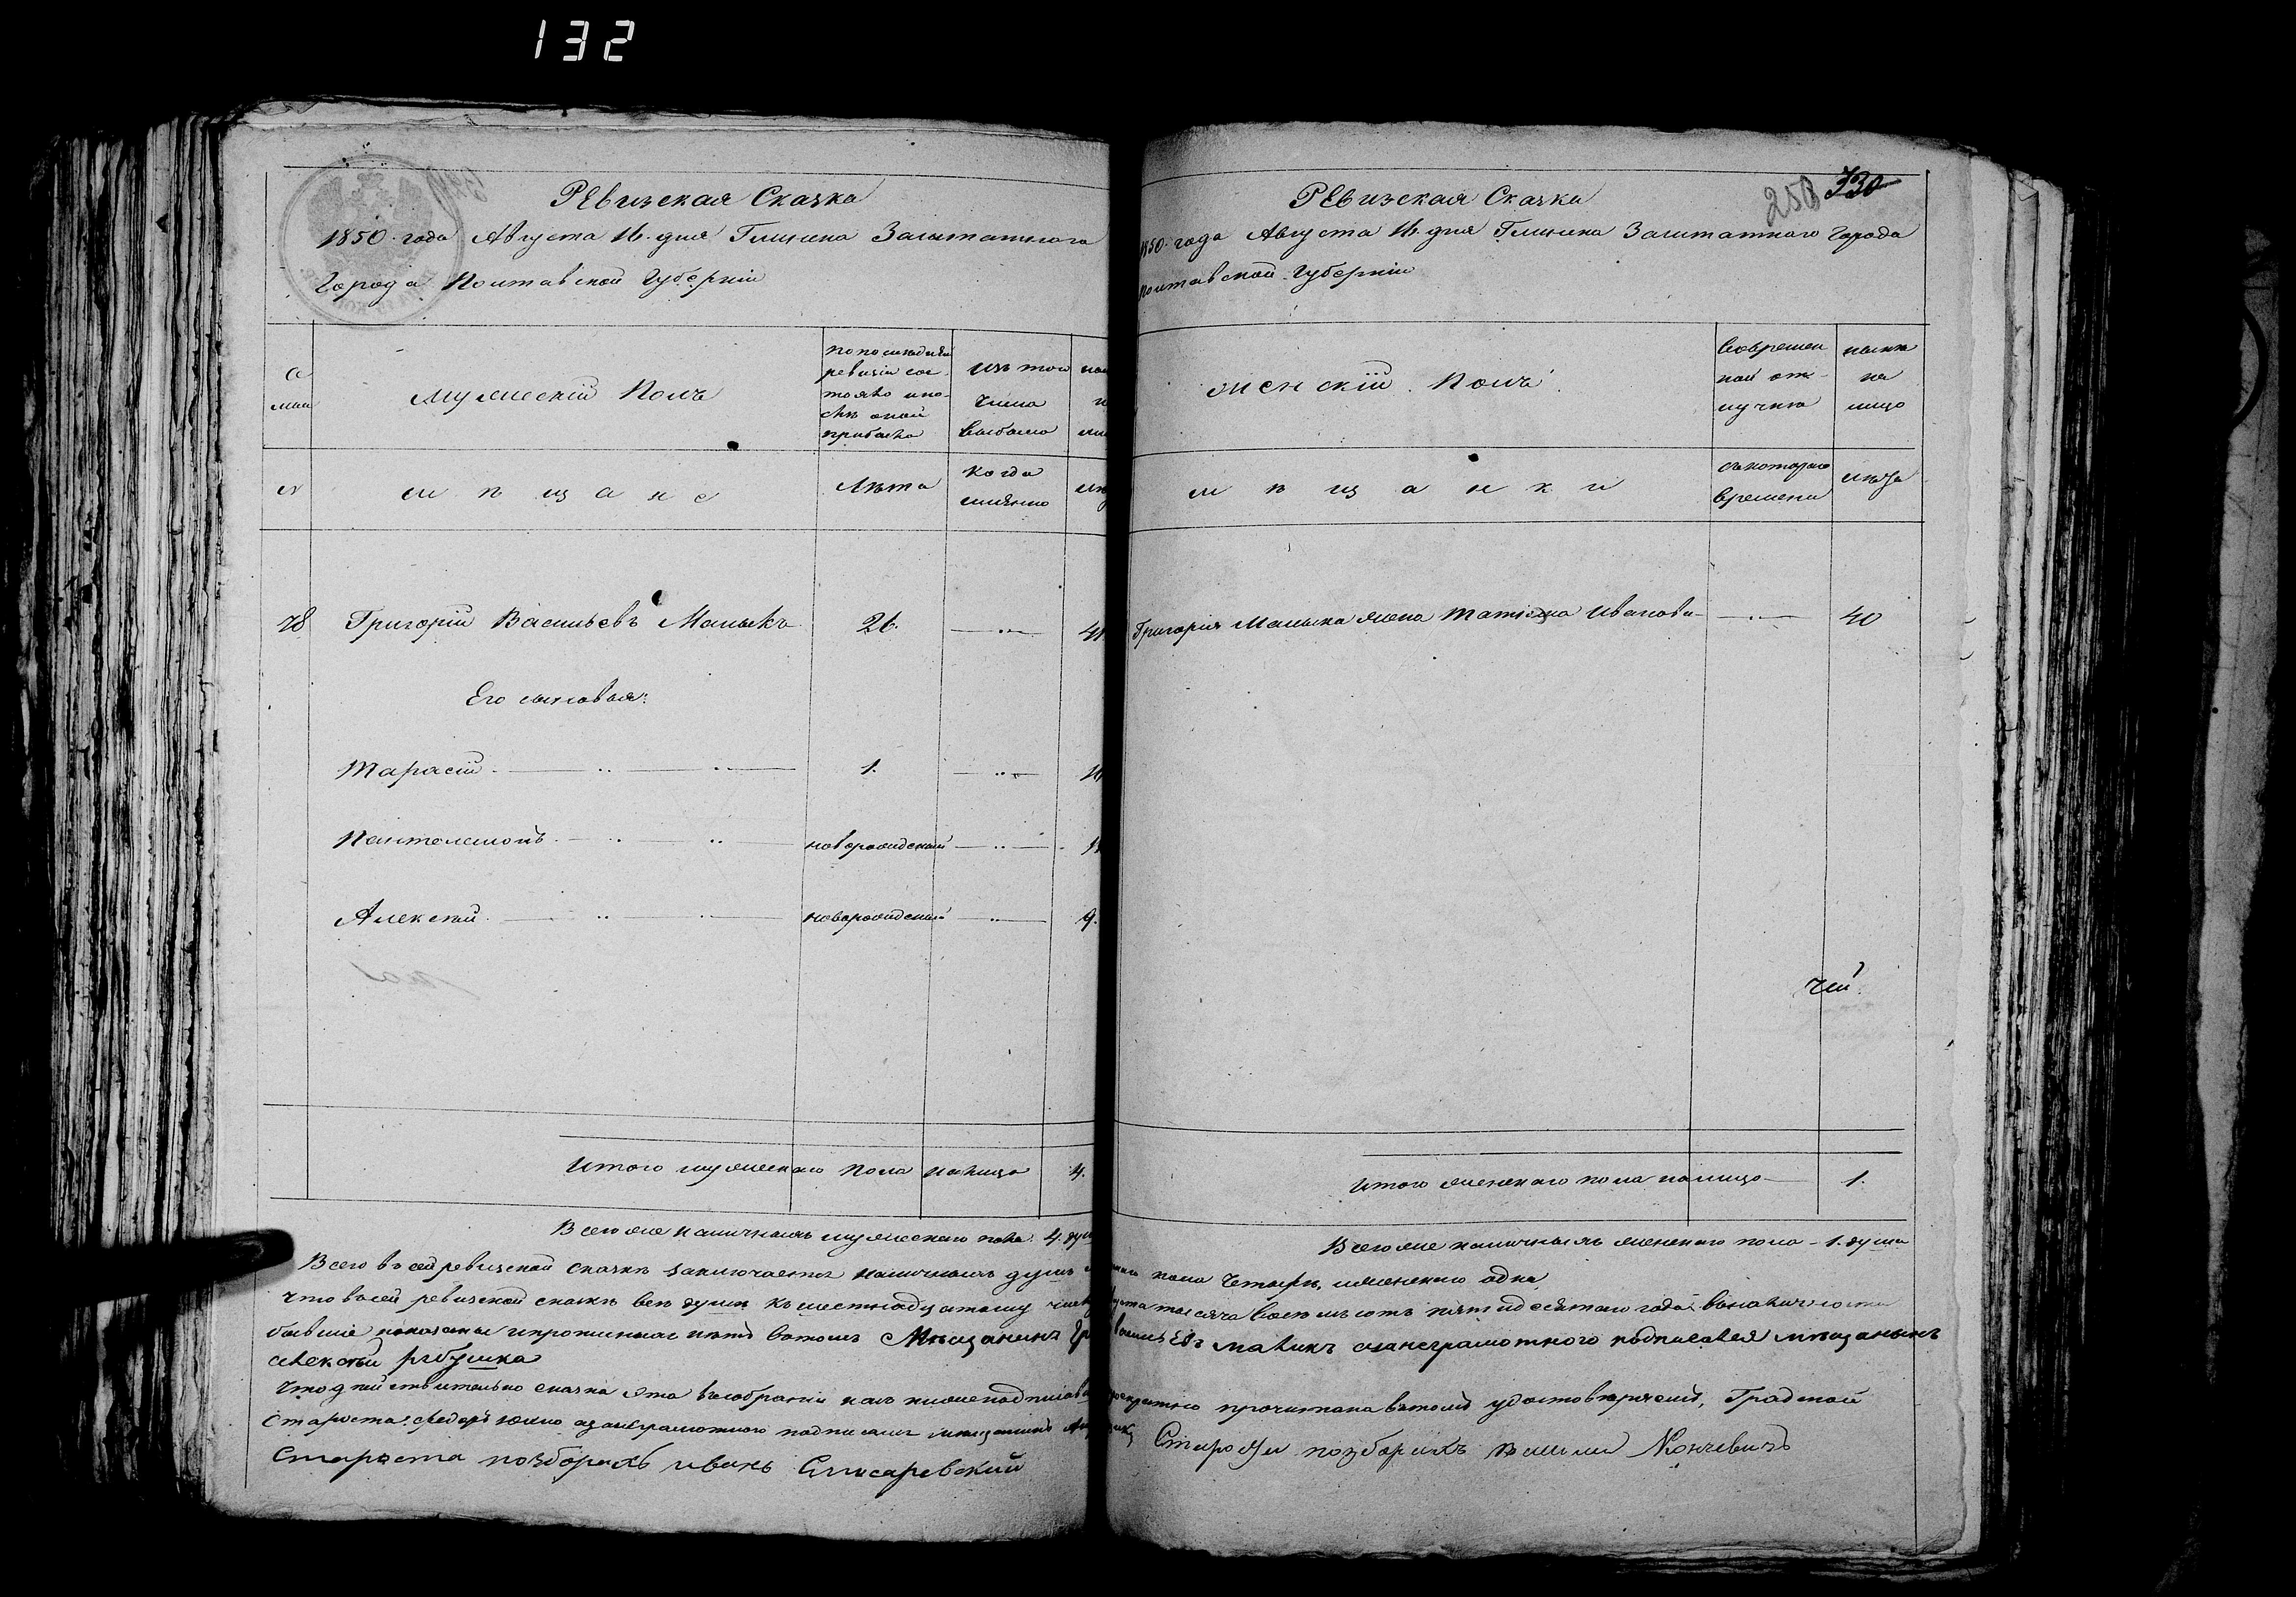 132
Ревизская Сказка
1850 года Августа 16 дня Глинска Заштатного
Города Полтавской Губернии
Семьи
Мужеский Полъ
По последней ревизіи состояло и после оной прибыло
Изъ того числа выбыло
№
мѣщане
Лѣта
Когда именно
78 Григорій Васильевъ Малыкъ 26. 41
Его сыновья:
Тарасій 1. 16
Пантелеймонъ новорожденный
Алексѣй новорожденный 9.
Итого мужескаго пола налицо 4.
Всего же наличныхъ мужескаго пола 4. душ
250 730
Ревизская Сказка
1850 года Августа 16 дня Глинска Заштатного Города
Полтавской Губерніи
Женскій Полъ
Во временной отлучке
ныне на лицо
мѣщанки
съ котораго времени
лѣта
Григорія Малыка жена Татіяна Иванова 40
чей
Итого женскаго пола налицо 1.
Всего же наличныхъ женскаго пола 1. душа
Всего въ сей ревизской сказкѣ заключается наличныхъ душъ пола четыре, женскаго одна,
что въ сей ревизской сказкѣ все души къ шестнадцатому числу тысяча восемьсотъ пятидесятаго года в наличности
бывшіе показаны и пропишных нетъ въ томъ Мѣщанинъ маликъ неграмотного подписался мѣщанинъ
алексѣй рябушка
что действительно сказка эта въ собраніи прочитана въ томъ удостоверяемъ, Градской
Староста федоръ подписался мещанинъ
Староста по зборахъ иванъ Слисаревский
Староста по зборахъ Кончевичъ